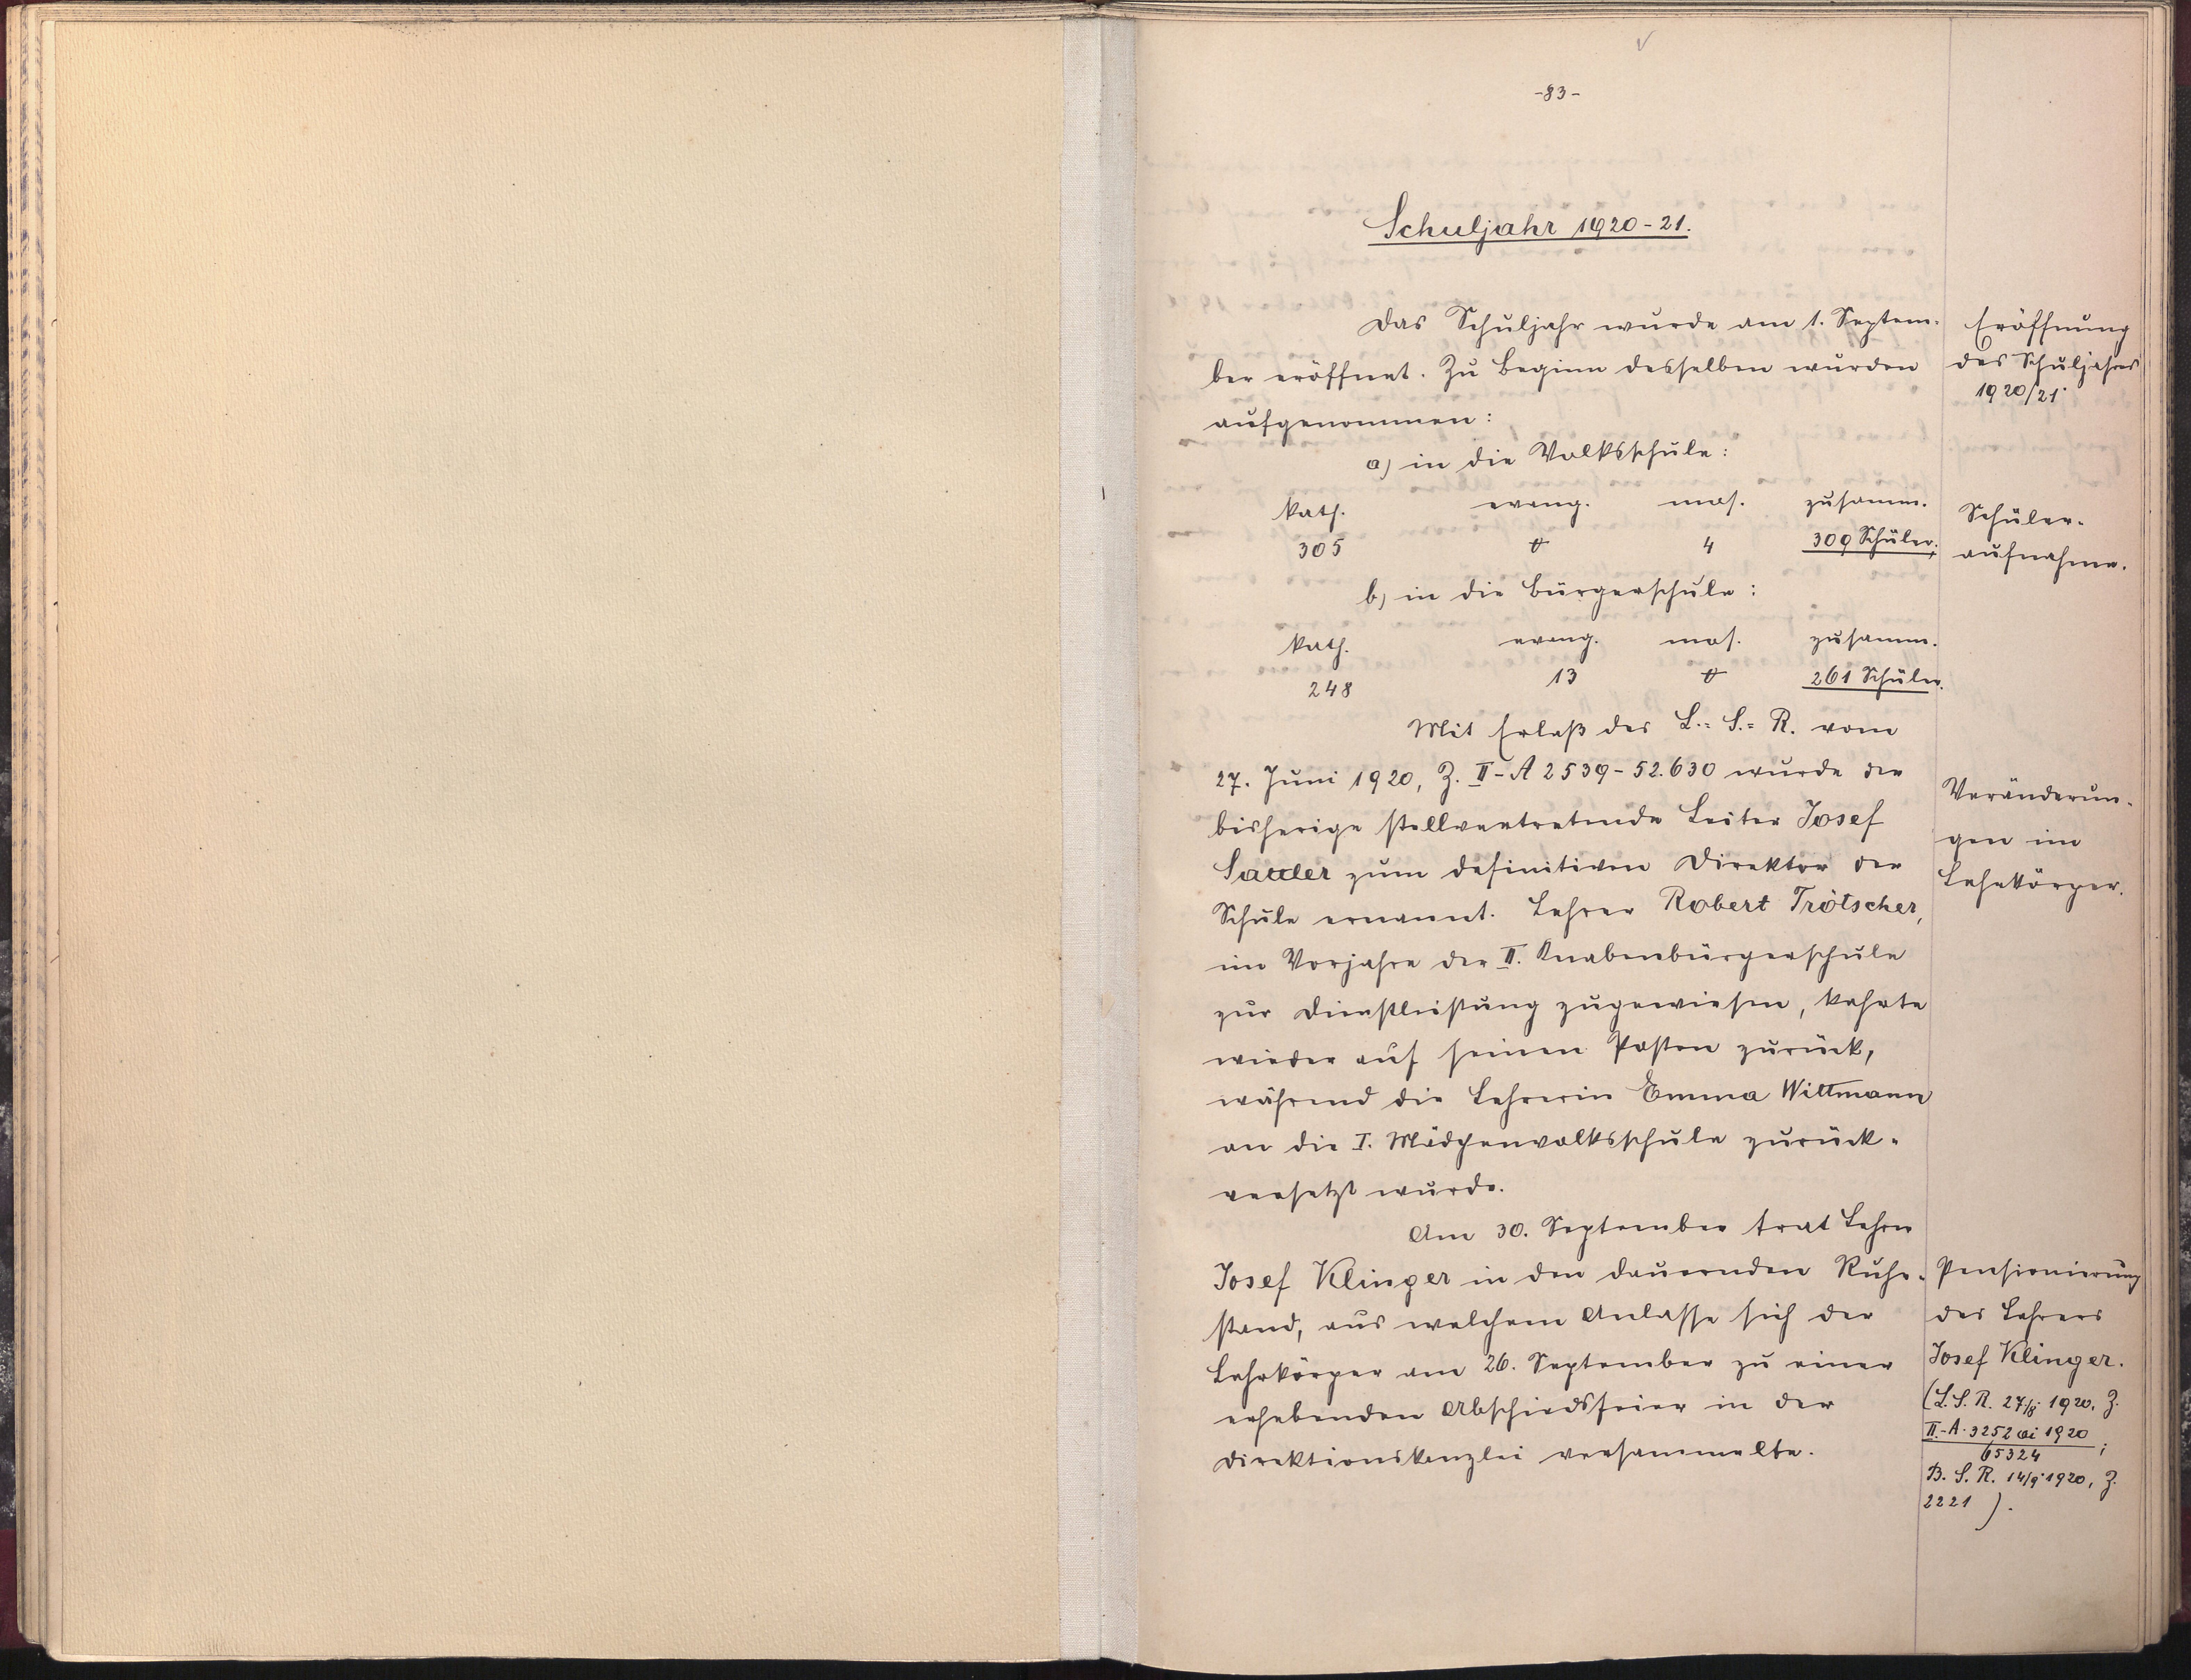 -83-
Schuljahr 1920-21.
Das Schuljahr wurde am 1. Septem-
ber eröffnet. Zu Beginn desselben wurden
aufgenommen:
a) in die Volksschule:
kath. evang. mos. zusamm.
305 0 4 309 Schüler;
b) in die Bürgerschule:
kath. evang. mos. zusamm.
248 13 0 261 Schüler.
Mit Erlaß des L.=S.=R. vom
27. Juni 1920, Z. II-A 2539-52.630 wurde der
bisherige stellvertretende Leiter Josef
Sauer zum definitiven Direktor der
Schule ernannt. Lehrer Robert Trötscher,
im Vorjahre der II. Knabenbürgerschule
zur Dienstleistung zugewiesen, kehrte
wieder auf seinen Posten zurück,
während die Lehrerin Emma Wittmann
an die I. Mädchenvolksschule zurück-
versetzt wurde.
Am 30. September trat Lehrer
Josef Klinger in den dauernden Ruhe-
stand, aus welchem Anlasse sich der
Lehrkörper am 26. September zu einer
erhebenden Abschiedsfeier in der
Direktionskanzlei versammelte.
Eröffnung
des Schuljahres
1920/21.
Schüler-
aufnahme.
Veränderun-
gen im
Lehrkörper.
Pensionierung
des Lehrers
Josef Klinger.
(L.S.R. 27/8 1920, Z.
II.-A-3252 ai 1920
65324;
B.S.R. 14/9 1920, Z.
2221).